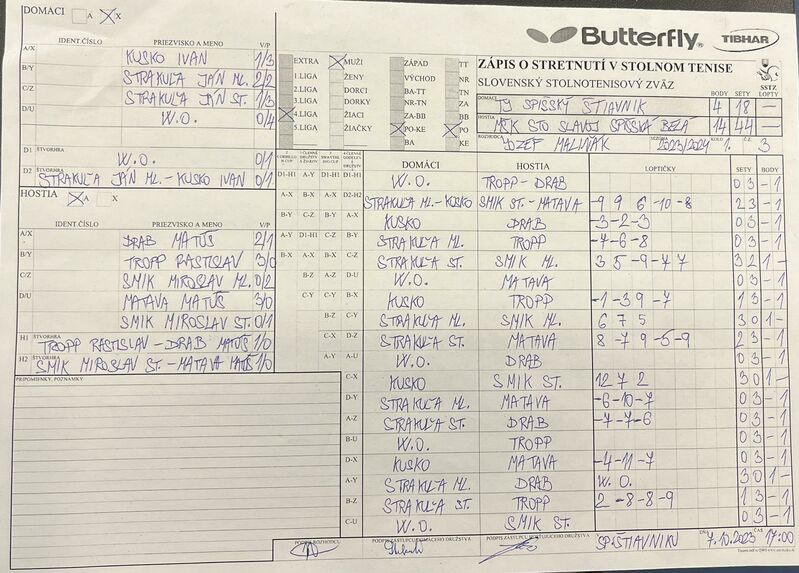 DOMÁCI A X
IDENT.ČÍSLO PRIEZVISKO A MENO V/P
A/X KUSKO IVAN 1/3
B/Y STRAKUĽA JÁN ML. 2/2
C/Z STRAKUĽA JÁN ST. 1/3
D/U W.O. 0/4
ŠTVORHRA
D1 W.O. 0/1
ŠTVORHRA
D2 STRAKUĽA JÁN ML. - KUSKO IVAN 0/1
HOSTIA A X
IDENT.ČÍSLO PRIEZVISKO A MENO V/P
A/X DRAB MATÚŠ 2/1
B/Y TROPP RASTISLAV 3/0
C/Z SMIK MIROSLAV ML. 0/2
D/U MATAVA MATÚŠ 3/0
SMIK MIROSLAV ST. 0/1
H1 ŠTVORHRA
TROPP RASTISLAV - DRAB MATÚŠ 1/0
H2 ŠTVORHRA
SMIK MIROSLAV ST. - MATAVA MATÚŠ 1/0
PRIPOMIENKY, POZNÁMKY
EXTRA MUŽI ZÁPAD TT
1.LIGA ŽENY VÝCHOD NR
2.LIGA DORCI BA-TT TN
3.LIGA DORKY NR-TN ZA
4.LIGA ŽIACI ZA-BB BB
5.LIGA ŽIAČKY PO-KE PO
BA KE
Butterfly TIBHAR
ZÁPIS O STRETNUTÍ V STOLNOM TENISE
SLOVENSKÝ STOLNOTENISOVÝ ZVÄZ SSTZ
BODY SETY LOPTY
DOMÁCI TJ SPIŠSKÝ ŠTIAVNIK 4 18 —
HOSTIA MŠK STO SLAVOJ SPIŠSKÁ BELÁ 14 44 —
ROZHODCA JOZEF MALIŇÁK SEZÓNA 2023/2024 KOLO 1. Č. 3
DOMÁCI HOSTIA LOPTIČKY SETY BODY
D1-H1 A-Y D1-H1 D1-H1 W.O. TROPP - DRAB 0 3 - 1
A-X B-X A-X D2-H2 STRAKUĽA ML. - KUSKO SMIK ST. - MATAVA -9 9 6 -10 -8 2 3 - 1
B-Y C-Z B-Y A-X KUSKO DRAB -3 -2 -3 0 3 - 1
A-Y D1-H1 C-Z B-Y STRAKUĽA ML. TROPP -7 -6 -8 0 3 - 1
B-X A-X B-X C-Z STRAKUĽA ST. SMIK ML. 3 5 -9 -7 7 3 2 1 -
B-Z A-Z D-U W.O. MATAVA 0 3 - 1
C-Y C-Y B-X KUSKO TROPP -1 -3 9 -7 1 3 - 1
B-Z C-Y STRAKUĽA ML. SMIK ML. 6 7 5 3 0 1 -
C-X D-Z STRAKUĽA ST. MATAVA 8 -7 9 -5 -9 2 3 - 1
A-Y A-U W.O. DRAB 0 3 - 1
C-X KUSKO SMIK ST. 12 7 2 3 0 1 -
D-Y STRAKUĽA ML. MATAVA -6 -10 -7 0 3 - 1
A-Z STRAKUĽA ST. DRAB -7 -7 -6 0 3 - 1
B-U W.O. TROPP 0 3 - 1
D-X KUSKO MATAVA -4 -11 -7 0 3 - 1
A-Y STRAKUĽA ML. DRAB W.O. 3 0 1 -
B-Z STRAKUĽA ST. TROPP 2 -8 -8 -9 1 3 - 1
C-U W.O. SMIK ST. 0 3 - 1
PODPIS ROZHODCU PODPIS ZÁSTUPCU DOMÁCEHO DRUŽSTVA PODPIS ZÁSTUPCU HOSŤUJÚCEHO DRUŽSTVA SP.ŠTIAVNIKU DŇA 7.10.2023 ČAS 17:00